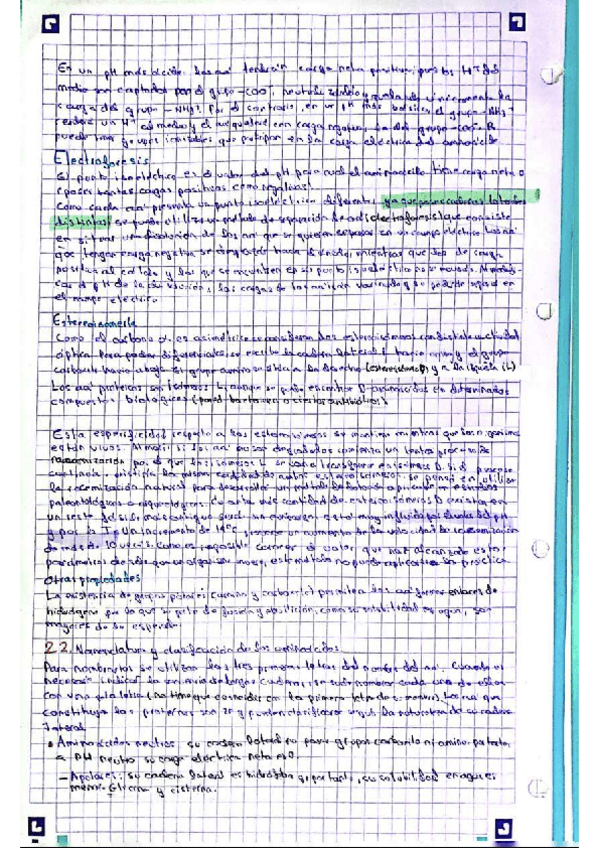 En un pH más ácido, los aa tendrán carga neta positiva, pues los H⁺ del
medio son captados por el grupo -COO⁻,
carga del grupo -NH₃⁺. Por el contrario, en un pH más básico, el grupo -NH₃⁺
cederá un H⁺ al medio y el aa quedará con carga negativa del grupo -COO⁻.
puede tener grupos ionizables que participan en la carga eléctrica del aminoácido
Electroforesis
El punto isoeléctrico es el valor del pH para cual el aminoácido tiene carga neta 0
(posee tantas cargas positivas como negativas)
Como cada aa presenta un punto isoeléctrico diferente, ya que posee cadenas laterales
distintas, se puede utilizar un método de separación de aa (electroforesis) que consiste
en situar una disolución de los aa que se quieren separar en un campo eléctrico. Los aa
que tengan carga negativa se dirigirán hacia el ánodo, mientras que los de carga
positiva al cátodo y los que se encuentren en su punto isoeléctrico no se moverán. Al modifi-
car el pH de la disolución, las cargas de los aa irán variando y se podrán separar en
el campo eléctrico.
Estereoisomería
Como el carbono α es asimétrico se consideran dos estereoisómeros con distinta actividad
óptica. Para poder diferenciarlos, se escribe la cadena lateral hacia arriba y el grupo
carboxilo hacia abajo. El grupo amino se sitúa a la derecha (estereoisómero D) y a la izquierda (L)
Los aa proteicos son isómeros L, aunque se pueden encontrar D-aminoácidos en determinados
compuestos biológicos (pared bacteriana o ciertos antibióticos)
Esta especificidad respecto a los estereoisómeros se mantiene mientras que los organismos
están vivos. Al morir, si los aa no son degradados comienza un lento proceso de
racemización por el que los isómeros L se van a transformar en isómeros D. Si el proceso
continúa, existirán la misma cantidad de ambos estereoisómeros. Se pensó en utilizar
la racemización natural para desarrollar un método de datación aplicable en restos
paleontológicos o arqueológicos. Cuanta más cantidad de estereoisómeros D exista en
un resto fósil, más antiguo será. Sin embargo, está muy influido por el valor del pH
y por la Tª. Un incremento de 14ºC provoca un aumento de la velocidad de racemización
de más de 10 veces. Como es imposible conocer el valor que han alcanzado estos
parámetros desde que el organismo muere, este método no puede aplicarse en la práctica
Otras propiedades
La existencia de grupos polares (amino y carboxilo) permiten a los aa formar enlaces de
hidrógeno por lo que su punto de fusión y ebullición, como su solubilidad en agua, son
mayores de lo esperado.
2.2. Nomenclatura y clasificación de los aminoácidos.
Para nombrarlos se utilizan las tres primeras letras del nombre del aa. Cuando es
necesario indicar la secuencia de largas cadenas, se suele nombrar cada uno de ellos
con una sola letra (no tiene que coincidir con la primera letra de su nombre). Los aa que
constituyen las proteínas son 20 y pueden clasificarse según la naturaleza de su cadena
lateral
• Aminoácidos neutros: su cadena lateral no posee grupos carboxilo ni amino, por tanto,
a pH neutro su carga eléctrica neta es 0.
– Apolares: su cadena lateral es hidrófoba y, por tanto, su solubilidad en agua es
menor. Glicina y cisteína.